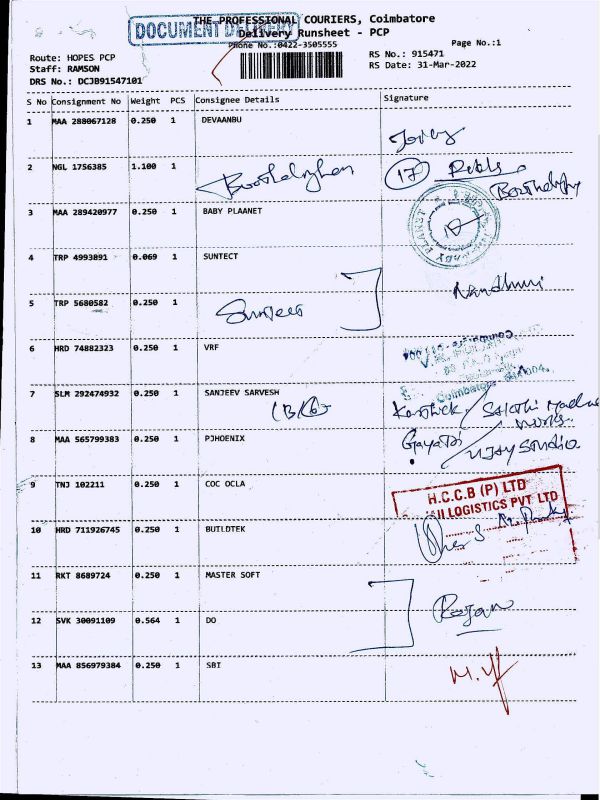 THE PROFESSIONAL COURIERS, Coimbatore
DOCUMENT DELIVERY
Delivery Runsheet - PCP
Phone No.:0422-3505555
Page No.:1
Route: HOPES PCP
RS No.: 915471
Staff: RAMSON
RS Date: 31-Mar-2022
DRS No.: DCJB91547101
S No Consignment No Weight PCS Consignee Details Signature
1 MAA 288067128 0.250 1 DEVAANBU
2 NGL 1756385 1.100 1
17
3 MAA 289420977 0.250 1 BABY PLAANET
4 TRP 4993891 0.069 1 SUNTECT
Nandhini
5 TRP 5680582 0.250 1
6 HRD 74882323 0.250 1 VRF
Coimbatore
7 SLM 292474932 0.250 1 SANJEEV SARVESH
Karthick / Sakthi
8 MAA 565799383 0.250 1 PJHOENIX
Gayatri / Vijay Studio
9 TNJ 102211 0.250 1 COC OCLA
H.C.C.B (P) LTD
LOGISTICS PVT LTD
10 HRD 711926745 0.250 1 BUILDTEK
11 RKT 8689724 0.250 1 MASTER SOFT
12 SVK 30091109 0.564 1 DO
Rajan
13 MAA 856979384 0.250 1 SBI